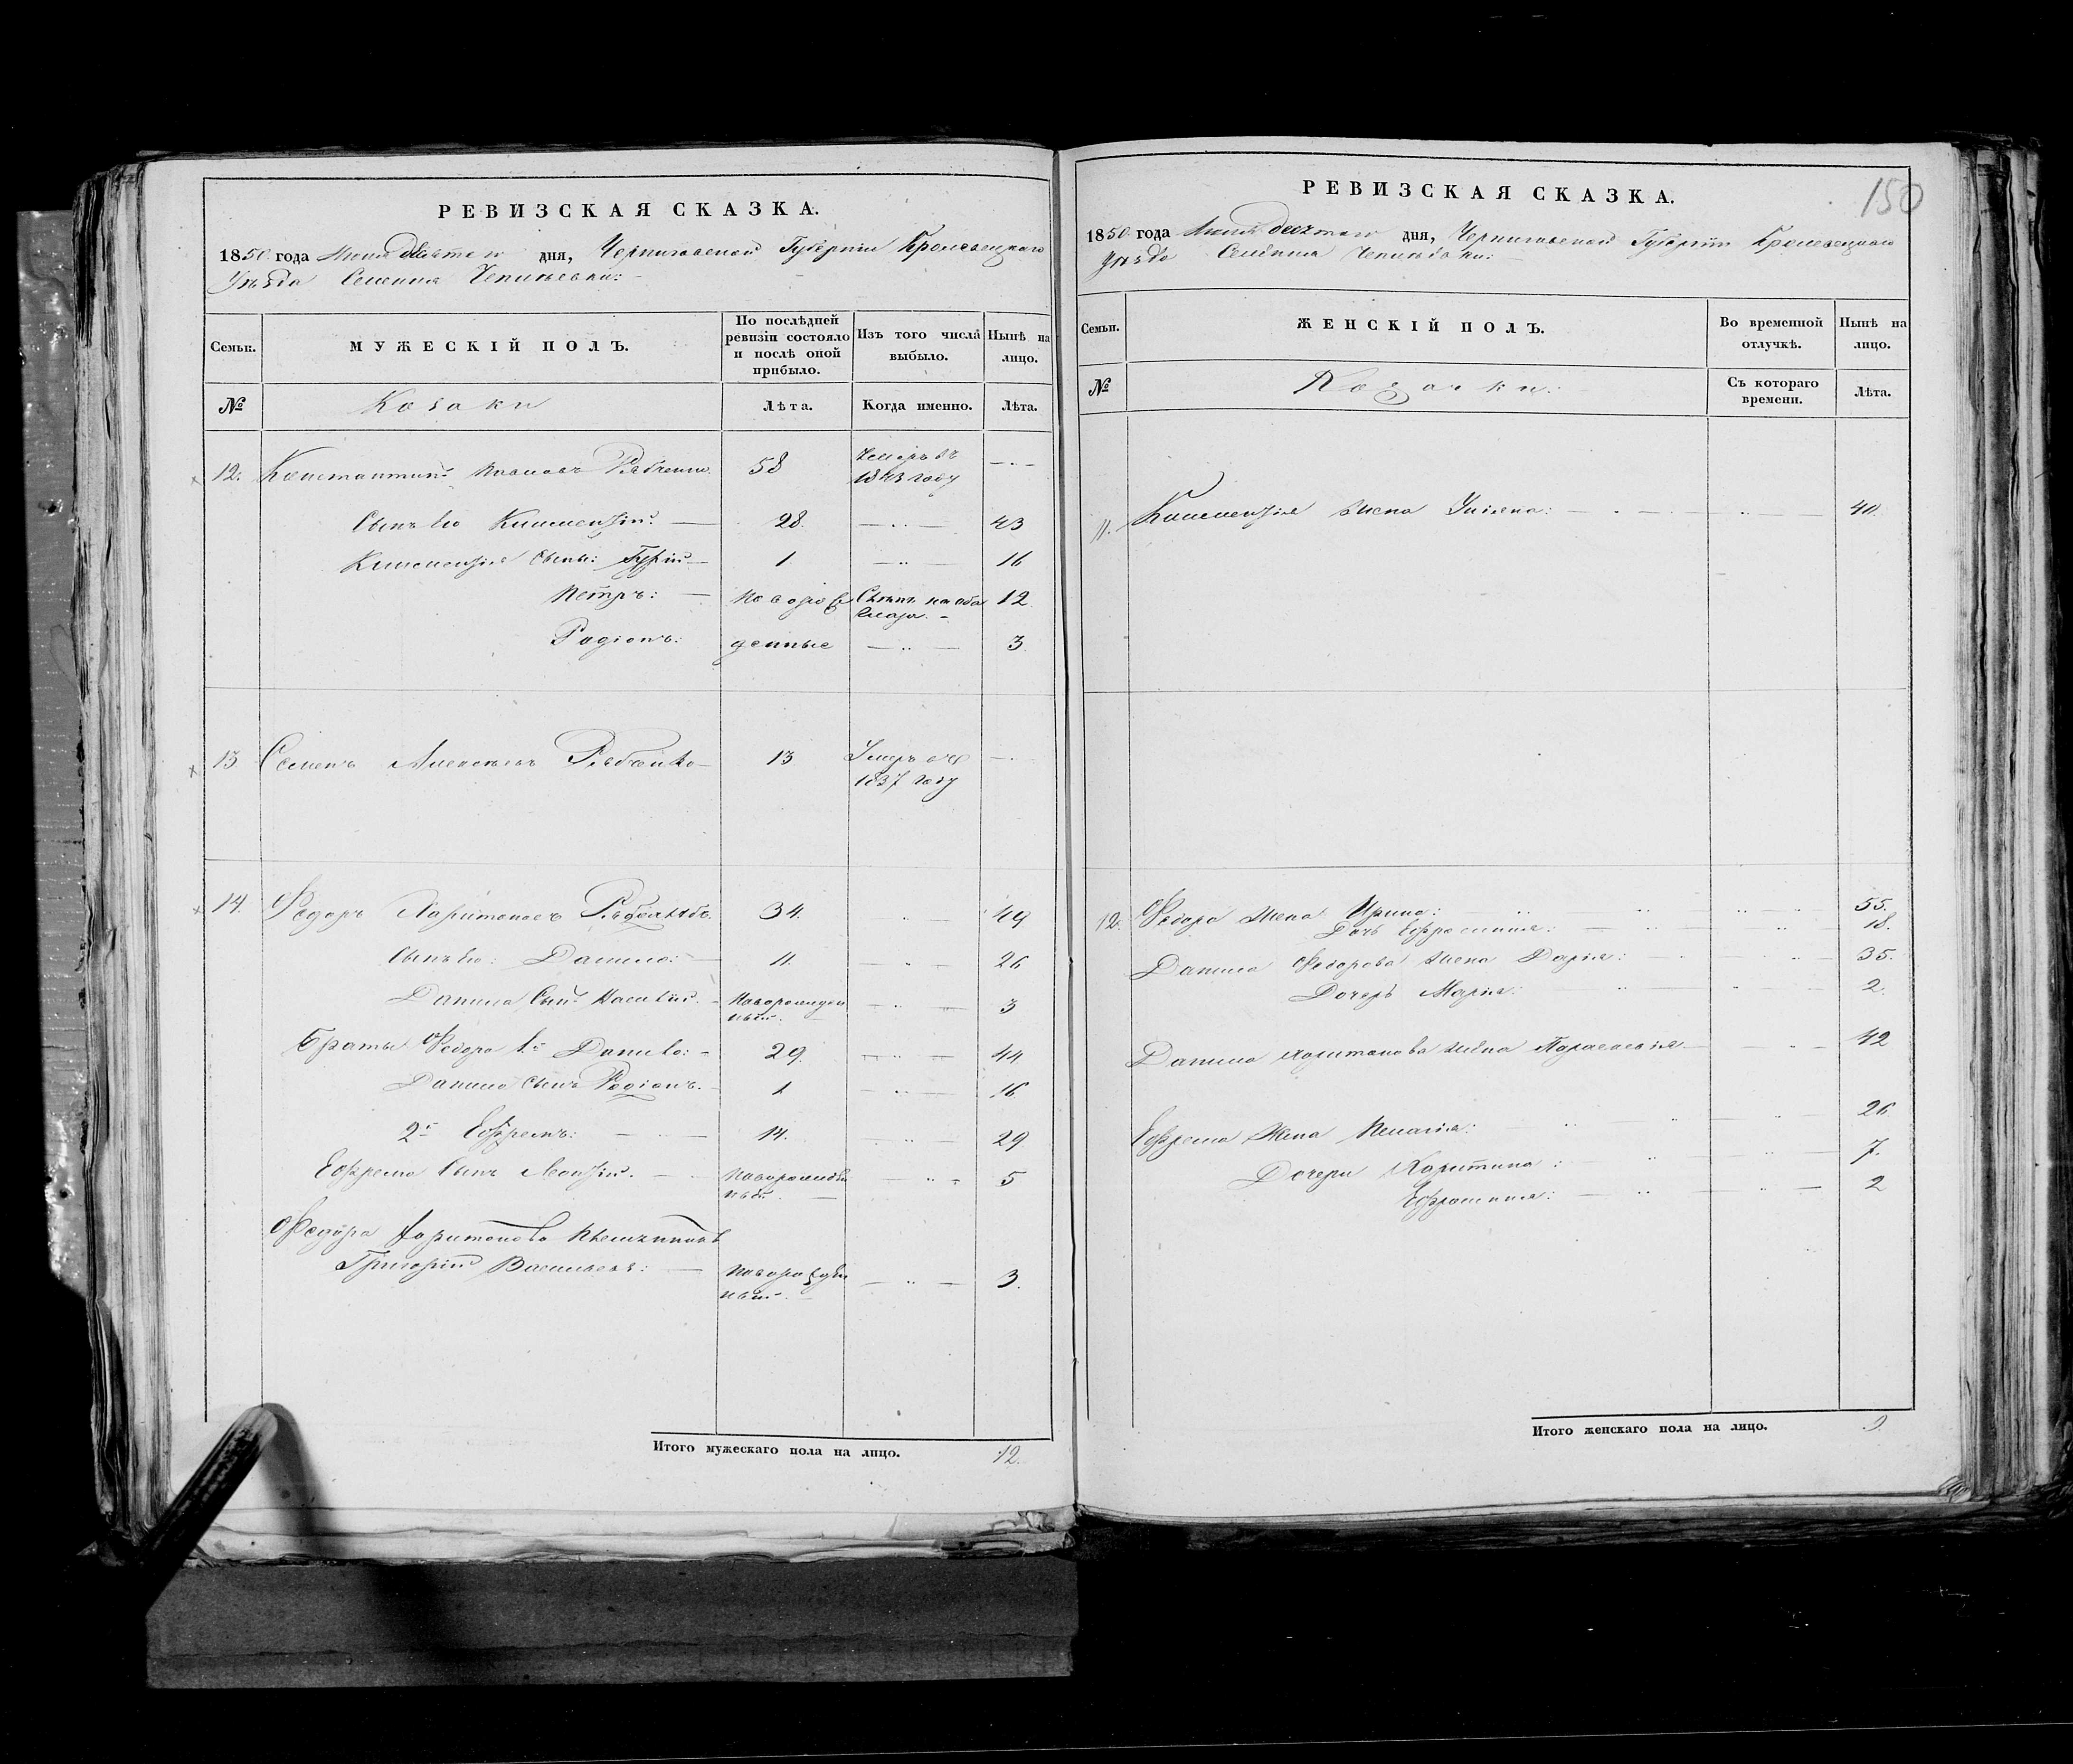 РЕВИЗСКАЯ СКАЗКА.
1850 года дня, Черниговской Губерніи Кролевецкаго
Уѣзда Селенія
Семьи.
МУЖЕСКІЙ ПОЛЪ.
По послѣдней ревизіи состояло и послѣ оной прибыло.
Изъ того числа выбыло.
Нынѣ на лицо.
№
Козаки
Лѣта.
Когда именно.
Лѣта.
12. Константинъ Ивановъ 58
1843 году
Сынъ его Климентій 28. 43
Климентія сыны: Гурій 1 16
Петръ: 12
Родіонъ: денные 3
13 Семенъ Алексѣевъ Рябченко 13 Умеръ въ
1837 году
14. Федоръ Харитоновъ 34. 49
Сынъ его: Данило: 11. 26
Данила Сынъ Новорожден 3
ный.
Братья Федора 1й Данило: 29. 44
Данила сынъ Родіонъ. 1 16
2й Ефремъ: 14. 29
Ефрема Сынъ Новорожден 5
ный.
Федора Харитонова племянникъ
Григорій Васильевъ: Новорожден 3.
ный.
Итого мужескаго пола на лицо. 12.
РЕВИЗСКАЯ СКАЗКА.
150
1850 года дня, Черниговской Губерніи Кролевецкаго
Уѣзда Селенія
Семьи.
ЖЕНСКІЙ ПОЛЪ.
Во временной отлучкѣ.
Нынѣ на лицо.
№
Козачки:
Съ котораго времени.
Лѣта.
11. Климентія жена Уліяна: 40.
12. Федора жена Ирина: 55.
Дочь Ефросинія: 18.
Данила Федорова жена Дарія: 35.
Дочерь Марія: 2.
Данила Харитонова жена Параскевія 42
Ефрема жена Пелагія: 26
Дочери Харитина: 7.
Ефросинія: 2
Итого женскаго пола на лицо. 9.